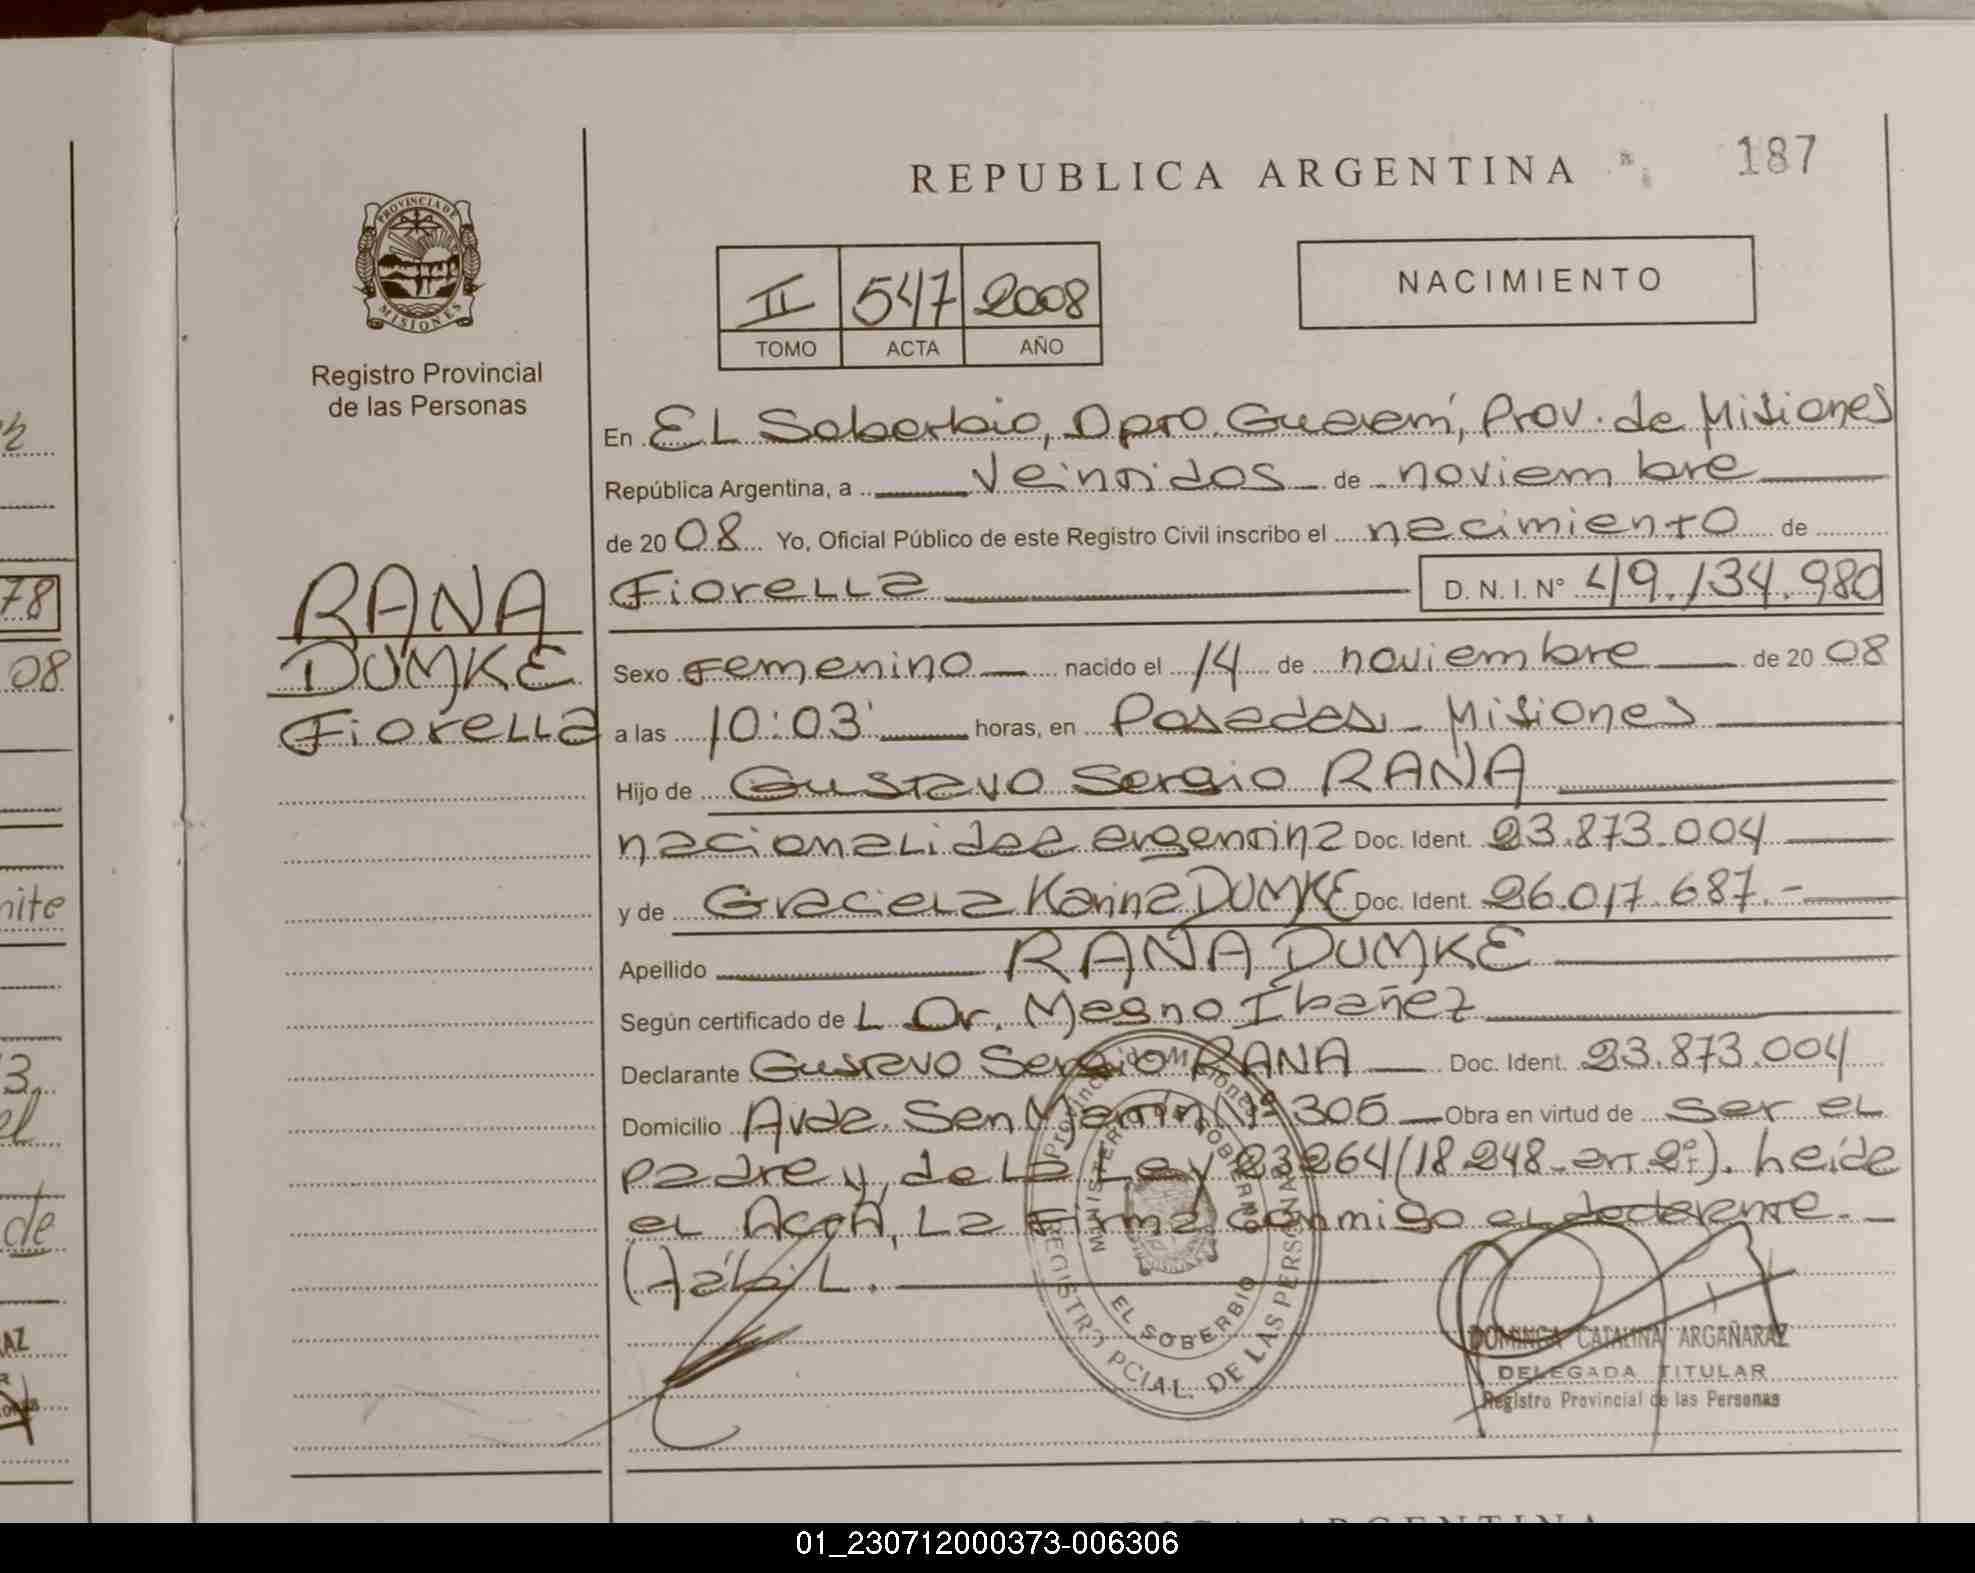 REPUBLICA ARGENTINA
187
PROVINCIA DE
MISIONES
Registro Provincial
de las Personas
II 547 2008
TOMO ACTA AÑO
NACIMIENTO
En EL Soberbio, Dpto. Guaraní, Prov. de Misiones
República Argentina, a veintidos de noviembre
de 2008 Yo, Oficial Público de este Registro Civil inscribo el nacimiento de
Fiorella D. N. I. Nº 49.134.980
RANA
DUMKE
Fiorella
Sexo Femenino nacido el 14 de noviembre de 2008
a las 10:03' horas, en Posadas - Misiones
Hijo de Gustavo Sergio RANA
nacionalidad argentina Doc. Ident. 23.873.004
y de Graciela Karina DUMKE Doc. Ident. 26.017.687.-
Apellido RANA DUMKE
Según certificado de L Dr. Magno Ibañez
Declarante Gustavo Sergio RANA Doc. Ident. 23.873.004
Domicilio Avda. San Martín Nº 305 Obra en virtud de ser el
padre y, de la Ley 23264/(18248-art 2º). Leida
el ActA, La Firma conmigo el declarante.-
(Hábil.
Provincia de Misiones
MINISTERIO GOBIERNO
EL SOBERBIO
REGISTRO PCIAL. DE LAS PERSONAS
DOMINGA CATALINA ARGAÑARAZ
DELEGADA TITULAR
Registro Provincial de las Personas
78
08
mite
3.
el
de
AZ
01_230712000373-006306